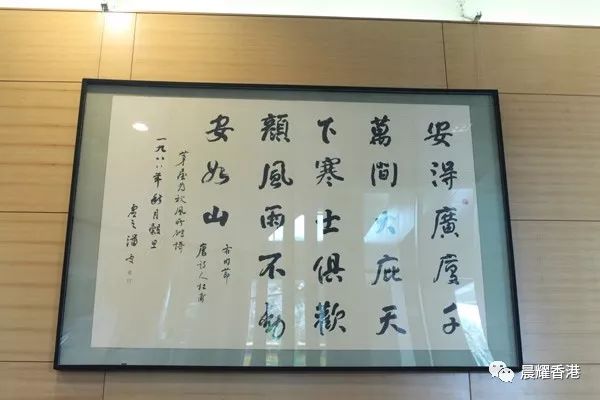 安得廣廈千
萬間大庇天
下寒士俱歡
顏風雨不動
安如山
唐詩人杜甫
茅屋为秋風所破
一九八八年月穀旦
晨耀香港